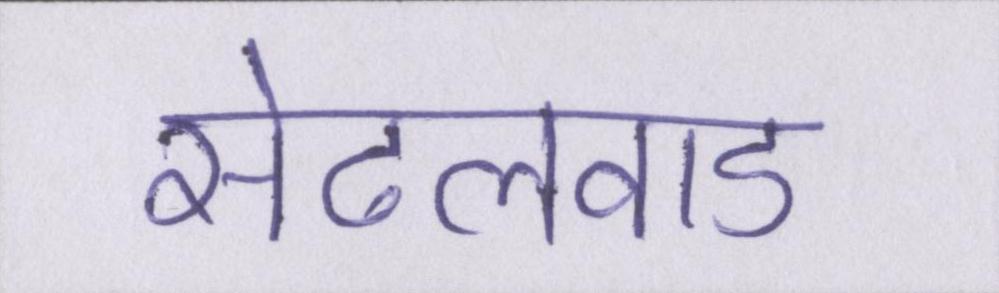 सेढलवाड